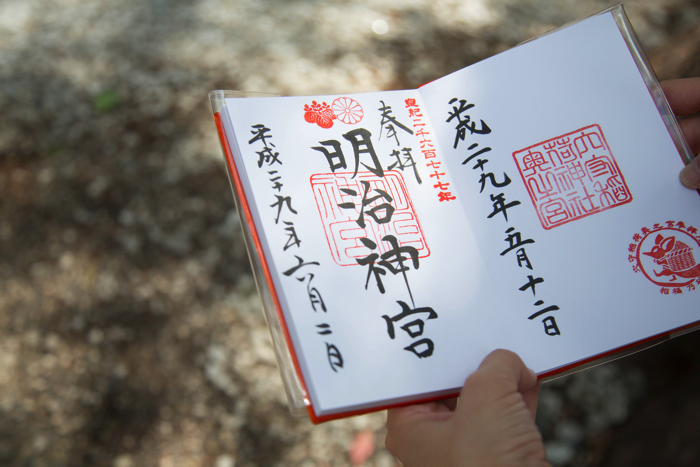 平成二十九年五月十二日
六宮稲荷神社奥山宮
皇紀二千六百七十七年
奉拝
明治神宮
平成二十九年六月二日